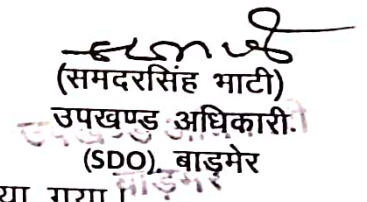 (समदरसिंह भाटी)
उपखण्ड अधिकारी.
(SDO), बाड़मेर
बाड़मेर
या गया।